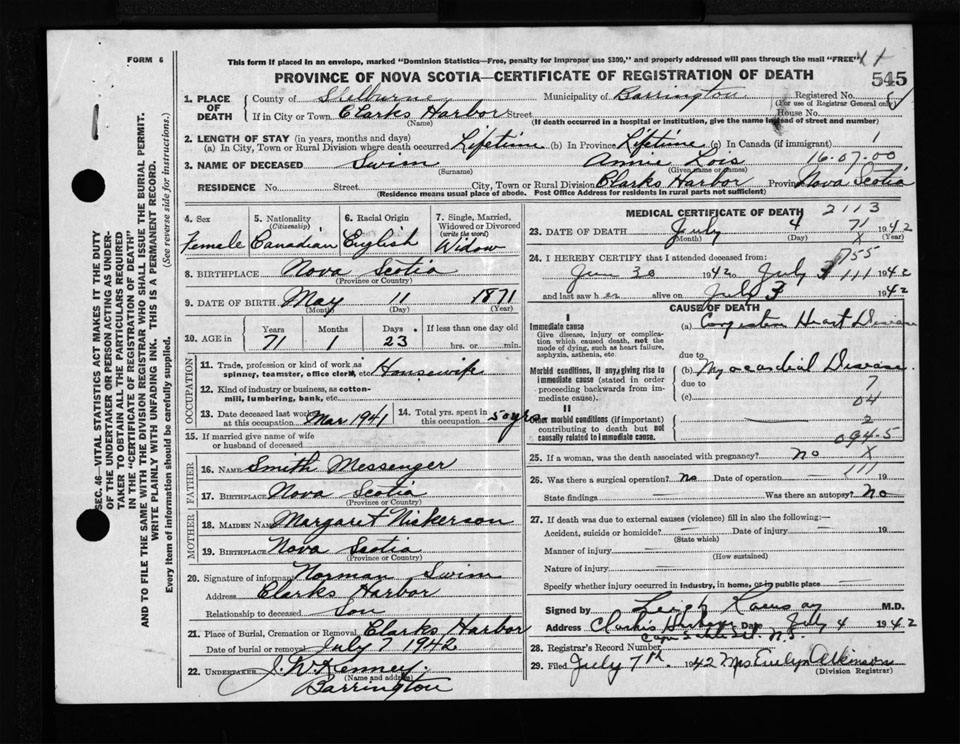 FORM 6
This form if placed in an envelope, marked "Dominion Statistics—Free, penalty for improper use $300," and properly addressed will pass through the mail "FREE"
PROVINCE OF NOVA SCOTIA—CERTIFICATE OF REGISTRATION OF DEATH
545
1. PLACE OF DEATH
County of Shelburne Municipality of Barrington Registered No.
(For use of Registrar General only)
If in City or Town Clarks Harbor Street House No.
(Name) (If death occurred in a hospital or institution, give the name instead of street and number)
2. LENGTH OF STAY (in years, months and days)
(a) In City, Town or Rural Division where death occurred Lifetime (b) In Province Lifetime (c) In Canada (if immigrant)
3. NAME OF DECEASED Swim Annie Lois 16-07-00
(Surname) (Given name or names)
RESIDENCE No. Street City, Town or Rural Division Clarks Harbor Province Nova Scotia
(Residence means usual place of abode. Post Office Address for Residents in rural parts not sufficient)
4. Sex
Female
5. Nationality
(Citizenship)
Canadian
6. Racial Origin
English
7. Single, Married, Widowed or Divorced
(write the word)
Widow
8. BIRTHPLACE Nova Scotia
(Province or Country)
9. DATE OF BIRTH May 11 1871
(Month) (Day) (Year)
10. AGE in Years Months Days If less than one day old
71 1 23 hrs. or min.
OCCUPATION
11. Trade, profession or kind of work as spinner, teamster, office clerk, etc. Housewife
12. Kind of industry or business, as cotton-mill, lumbering, bank, etc.
13. Date deceased last worked at this occupation Mar 1941
14. Total yrs. spent in this occupation 50 yrs
15. If married give name of wife or husband of deceased
FATHER
16. NAME Smith Messenger
17. BIRTHPLACE Nova Scotia
(Province or Country)
MOTHER
18. MAIDEN NAME Margaret Nickerson
19. BIRTHPLACE Nova Scotia
(Province or Country)
20. Signature of informant Norman Swim
Address Clarks Harbor
Relationship to deceased Son
21. Place of Burial, Cremation or Removal Clarks Harbor
Date of burial or removal July 7 1942
22. UNDERTAKER J. W. Kenney
(Name and address)
Barrington
MEDICAL CERTIFICATE OF DEATH 2113
23. DATE OF DEATH July 4 71 1942
(Month) (Day) (Year)
24. I HEREBY CERTIFY that I attended deceased from:
June 30 1942 to July 3 1942
and last saw h er alive on July 3 1942
CAUSE OF DEATH
I
Immediate cause
Give disease, injury or complication which caused death, not the mode of dying, such as heart failure, asphyxia, asthenia, etc
(a) Congestive Heart Disease
due to
Morbid conditions, if any, giving rise to immediate cause (stated in order proceeding backwards from immediate cause).
(b) Myocardial Disease
due to 7
(c) 04
II
Other morbid conditions (if important) contributing to death but not causally related to immediate cause.
2
094-5
25. If a woman, was the death associated with pregnancy? no X
26. Was there a surgical operation? No Date of operation 111 19
State findings Was there an autopsy? No
27. If death was due to external causes (violence) fill in also the following:—
Accident, suicide or homicide? Date of injury 19
(State which)
Manner of injury
(How sustained)
Nature of injury
Specify whether injury occurred in industry, in home, or in public place
Signed by Leigh M.D.
Address Clarks Harbour Date July 4 1942
N.S.
28. Registrar's Record Number
29. Filed July 7th 1942 Mrs Evelyn Atkinson
(Division Registrar)
SEC. 46—VITAL STATISTICS ACT MAKES IT THE DUTY
OF THE UNDERTAKER OR PERSON ACTING AS UNDER-
TAKER TO OBTAIN ALL THE PARTICULARS REQUIRED
IN THE "CERTIFICATE OF REGISTRATION OF DEATH"
AND TO FILE THE SAME WITH THE DIVISION REGISTRAR WHO SHALL ISSUE THE BURIAL PERMIT.
WRITE PLAINLY WITH UNFADING INK. THIS IS A PERMANENT RECORD.
Every item of information should be carefully supplied. (See reverse side for instructions.)